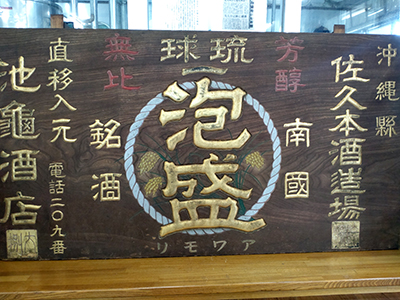 沖縄縣
佐久本酒造場
芳醇
南國
琉球
一
泡盛
アワモリ
無比
銘酒
直移入元
電話二〇九番
池龜酒店